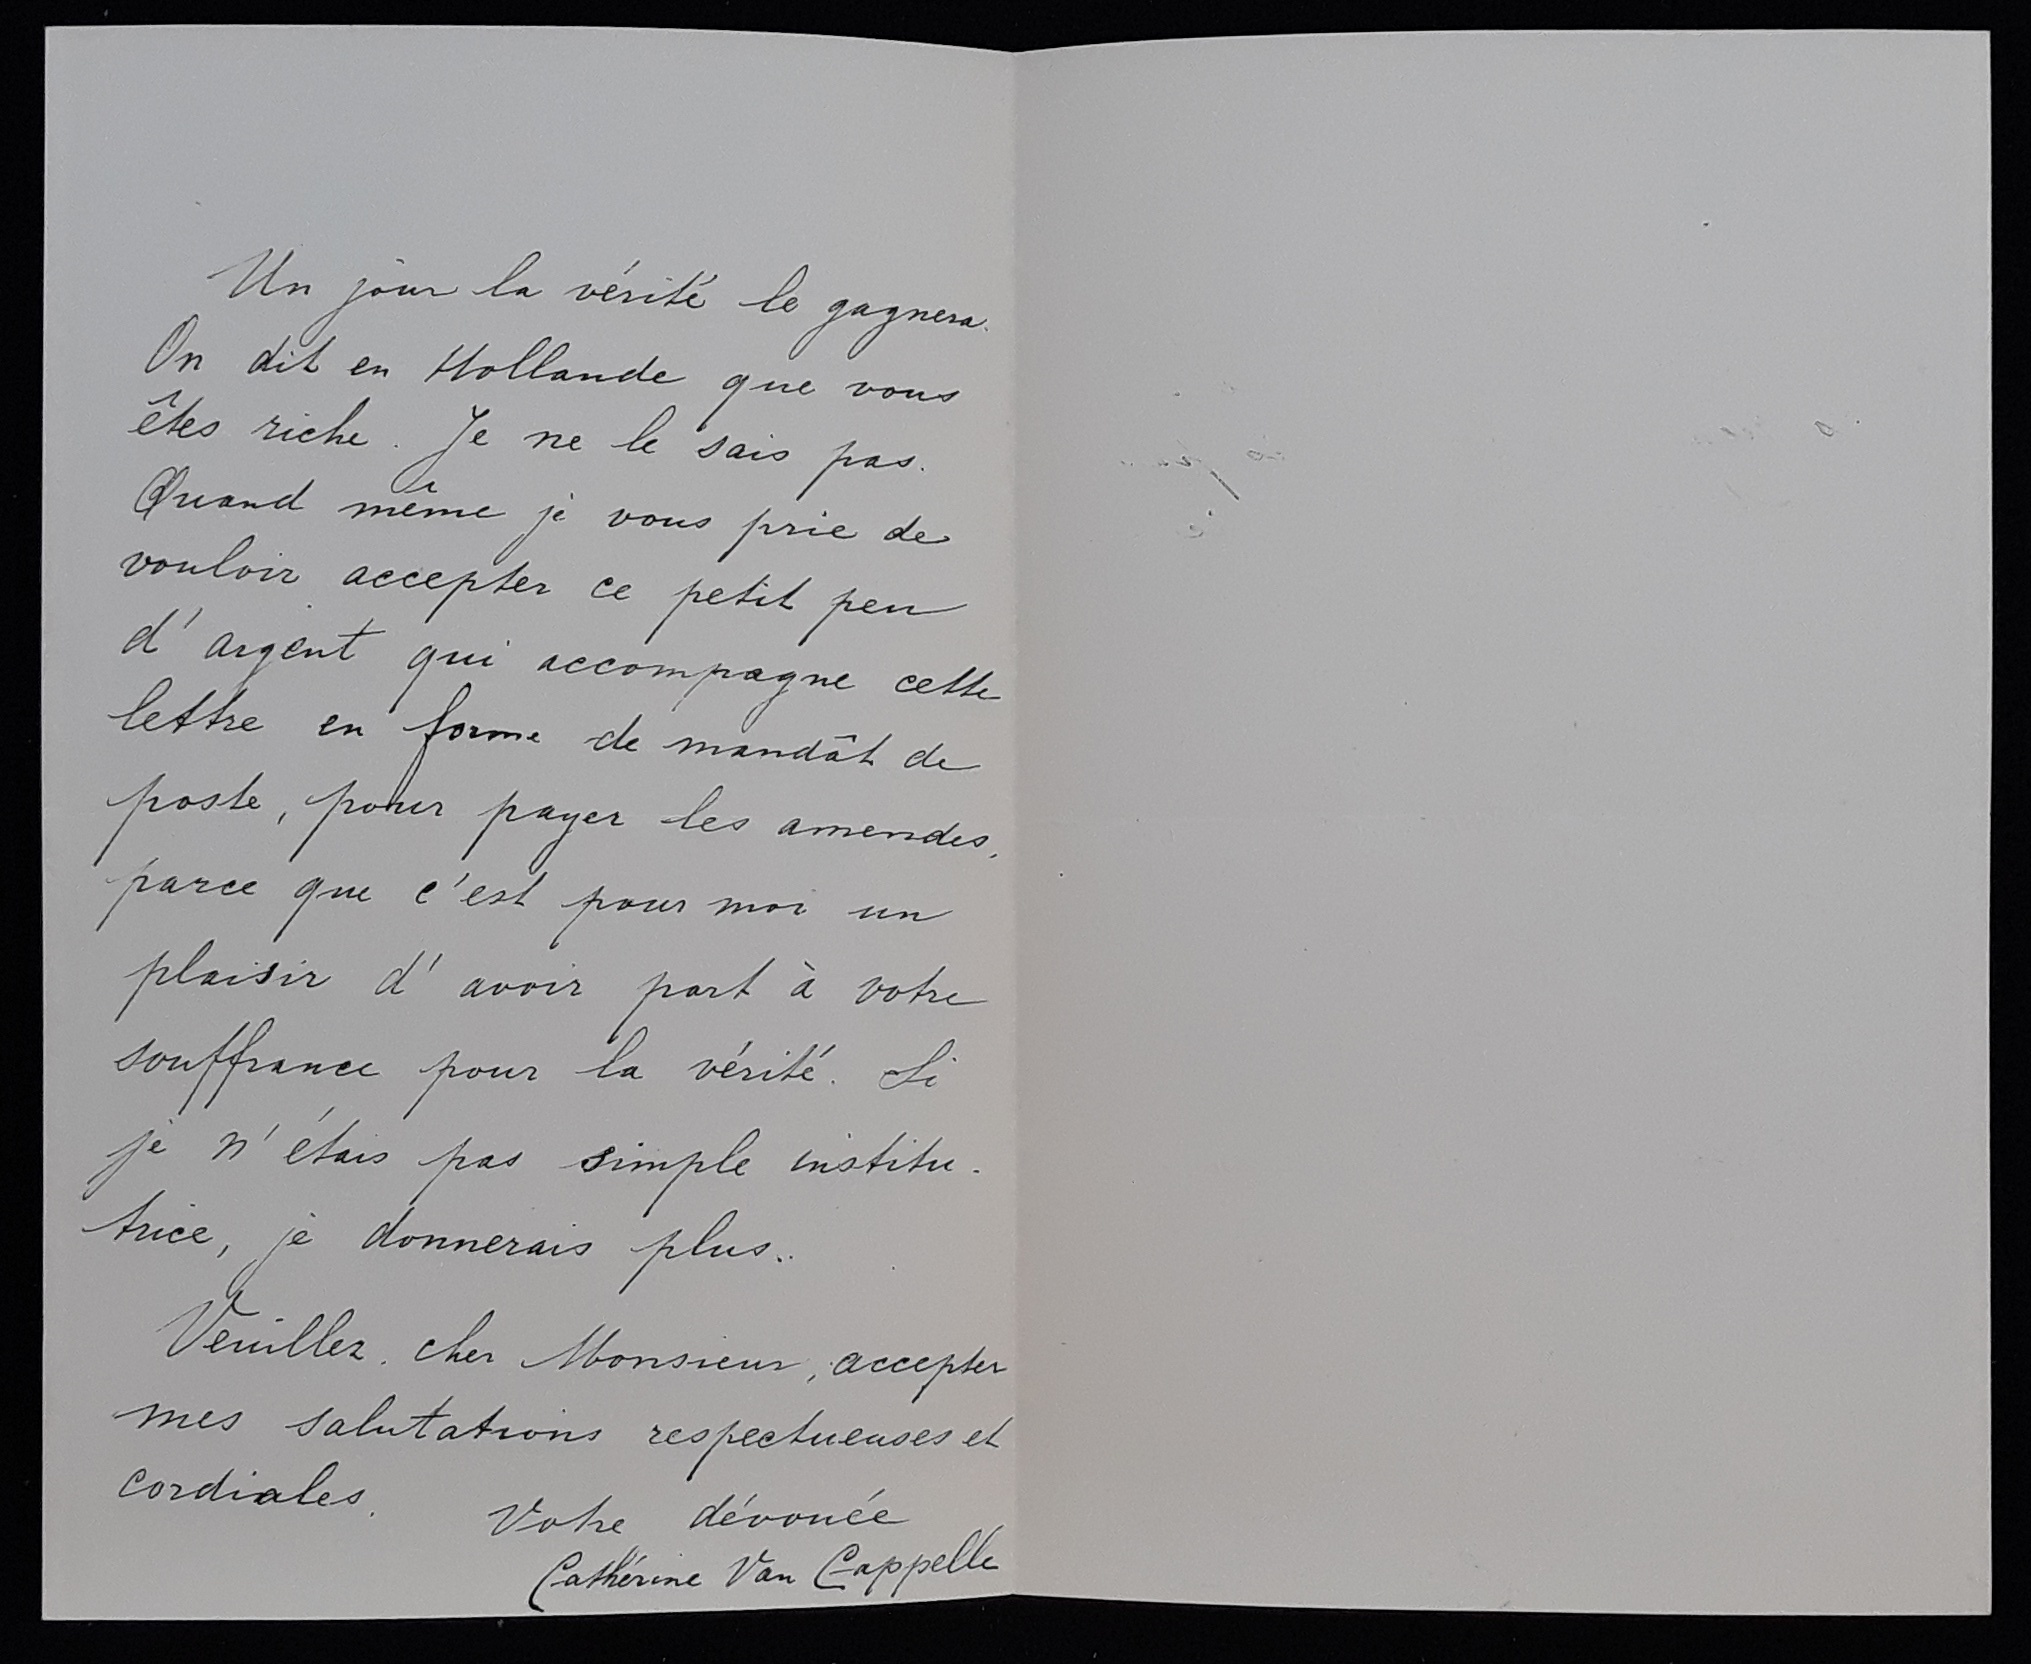 Un jour la vérité le gagnera.
On dit en Hollande que vous
êtes riche. Je ne le sais pas.
Quand même je vous prie de
vouloir accepter ce petit peu
d'argent qui accompagne cette
lettre en forme de mandât de
poste, pour payer les amendes,
parce que c'est pour moi un
plaisir d'avoir part à votre
souffrance pour la vérité. Si
je n'étais pas simple institu-
trice, je donnerais plus.
Veuillez, cher Monsieur, accepter
mes salutations respectueuses et
cordiales.
Votre dévouée
Cathérine Van Cappelle